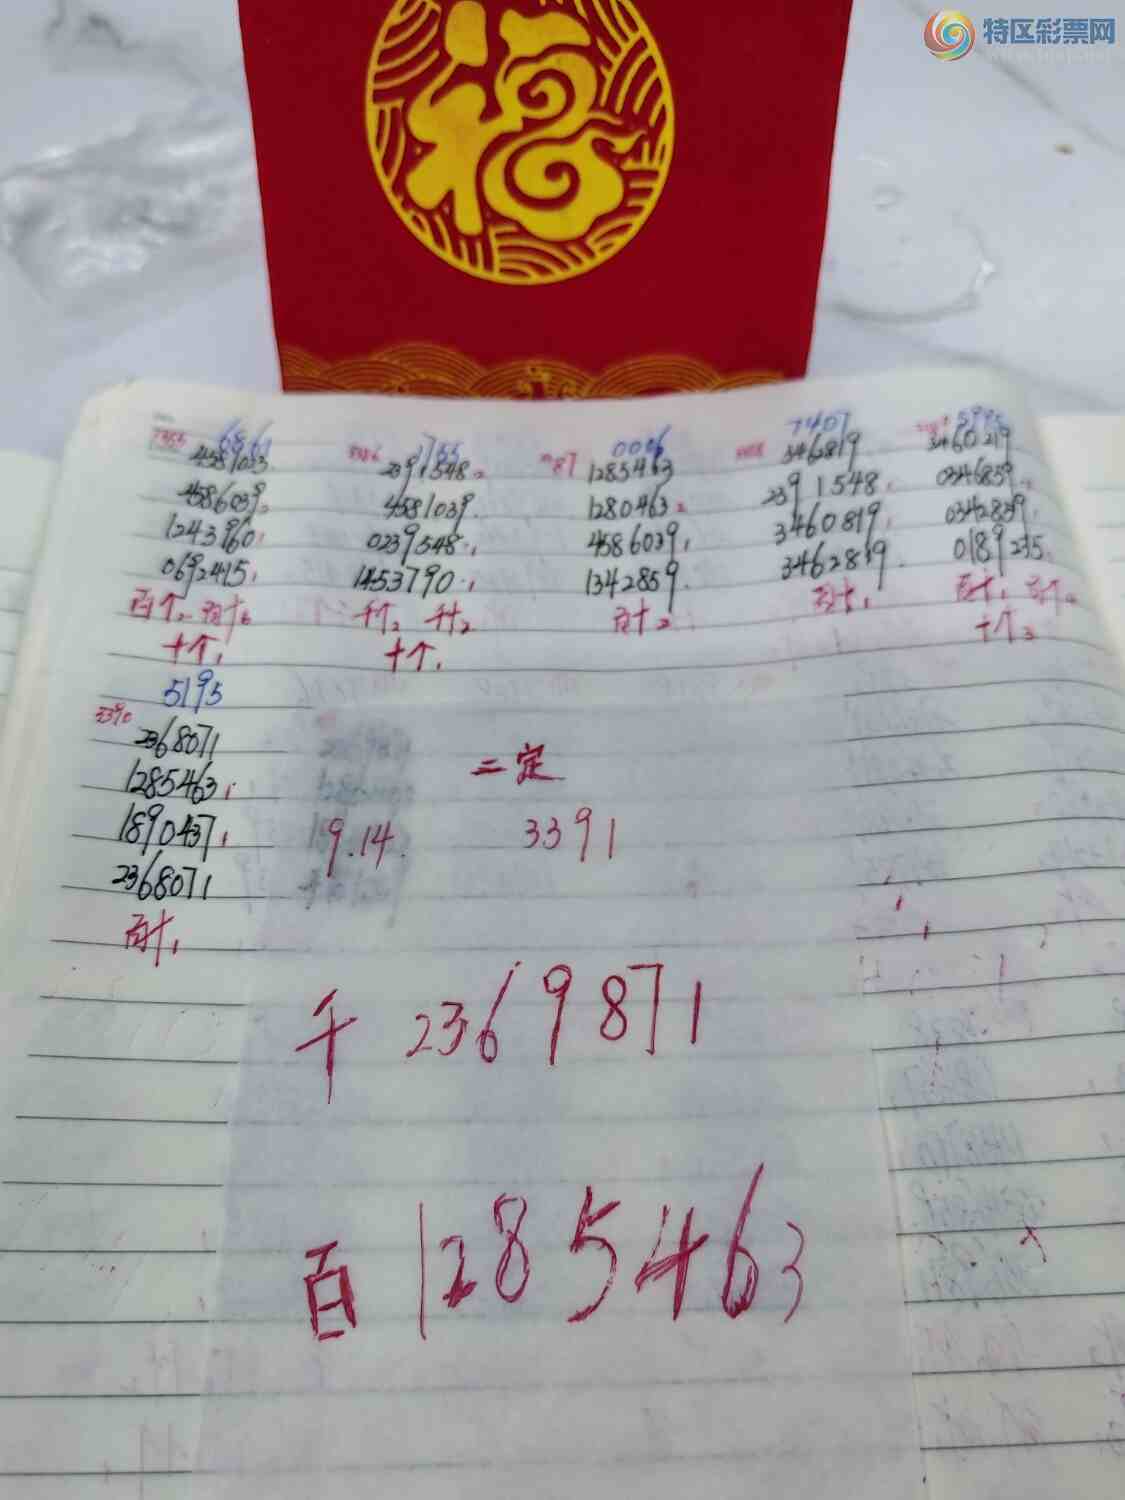 特区彩票网
福
7355 6861
4581033
4586039
1243960
0692415
百个2 百十6
十个1
1755
2391548
4581039
0239548
1453790
千个2 千十2
十个1
87 0006
1285463
1280463
4586039
1342859
百十2
7407
3462819
2391548
3460819
3462819
百十1
5995
3460219
0346859
0342839
0189235
百十1
十个3
5195
3390
2368071
1285463
1890437
2368071
百十1
二定
9.14 3391
千 2369871
百 1285463